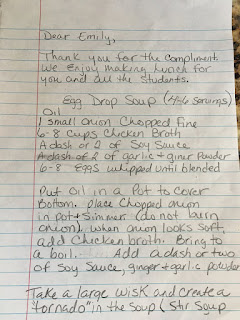 Dear Emily,
Thank you for the compliment.
We enjoy making lunch for
you and all the students.
Egg Drop Soup (4-6 servings)
Oil
1 small onion chopped fine
6-8 cups Chicken Broth
A dash or 2 of Soy Sauce
A dash of 2 of garlic & giner Powder
6-8 Eggs whipped until blended
Put Oil in a Pot to cover
Bottom. Place Chopped onion
in pot & simmer (do not burn
onion). when onion looks soft,
add Chicken broth. Bring to
a boil.... Add a dash or two
of Soy Sauce, ginger & garlic powder
Take a large wisk and create a
"tornado" in the soup (Stir Soup